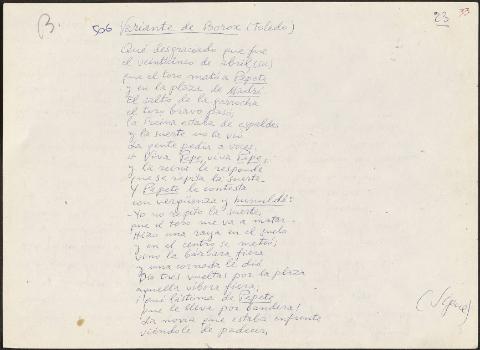 B.
506 Variante de Borox (Toledo)
23 33
Qué desgraciado que fue
el veinticinco de abril (sic)
que el toro mató a Pepete
y en la plaza de Madrí
El salto de la garrocha
el toro bravo pasó,
la reina estaba de espaldas
y la suerte no la vio
La gente pedía a voces,
Viva Pepe, viva Pepe,
y la reina le responde
que se repita la suerte.
Y Pepete le contesta
con vergüenza y humildá:
- Yo no repito la suerte,
que el toro me va a matar.
Hizo una raya en el suelo
y en el centro se metió;
vino la bárbara fiera
y una cornada le dió
Dio tres vueltas por la plaza
aquella víbora fiera,
¡qué lástima de Pepete
que le lleva por bandera!
La novia que estaba enfrente
viéndole de padecer,